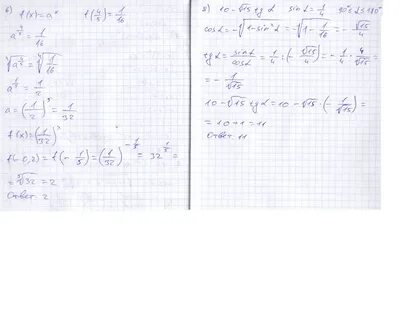 6) f(x)=a^x f(4/5)=1/16
a^(4/5) = 1/16
⁴√(a^(4/5)) = ⁴√(1/16)
a^(1/5) = 1/2
a = (1/2)^5 = 1/32
f(x)=(1/32)^x
f(-0,2)=f(-1/5)=(1/32)^(-1/5) = 32^(1/5) =
= ⁵√32 = 2
Ответ 2
10-√15 tg α sin α = 1/4 90°≤α≤180°
cos α = -√(1-sin²α) = -√(1-1/16) = -√15/4
tg α = sin α/cos α = 1/4 : (-√15/4) = -1/4 · 4/√15 =
= -1/√15
10-√15 tg α = 10-√15 · (-1/√15) =
= 10+1 = 11
Ответ 11